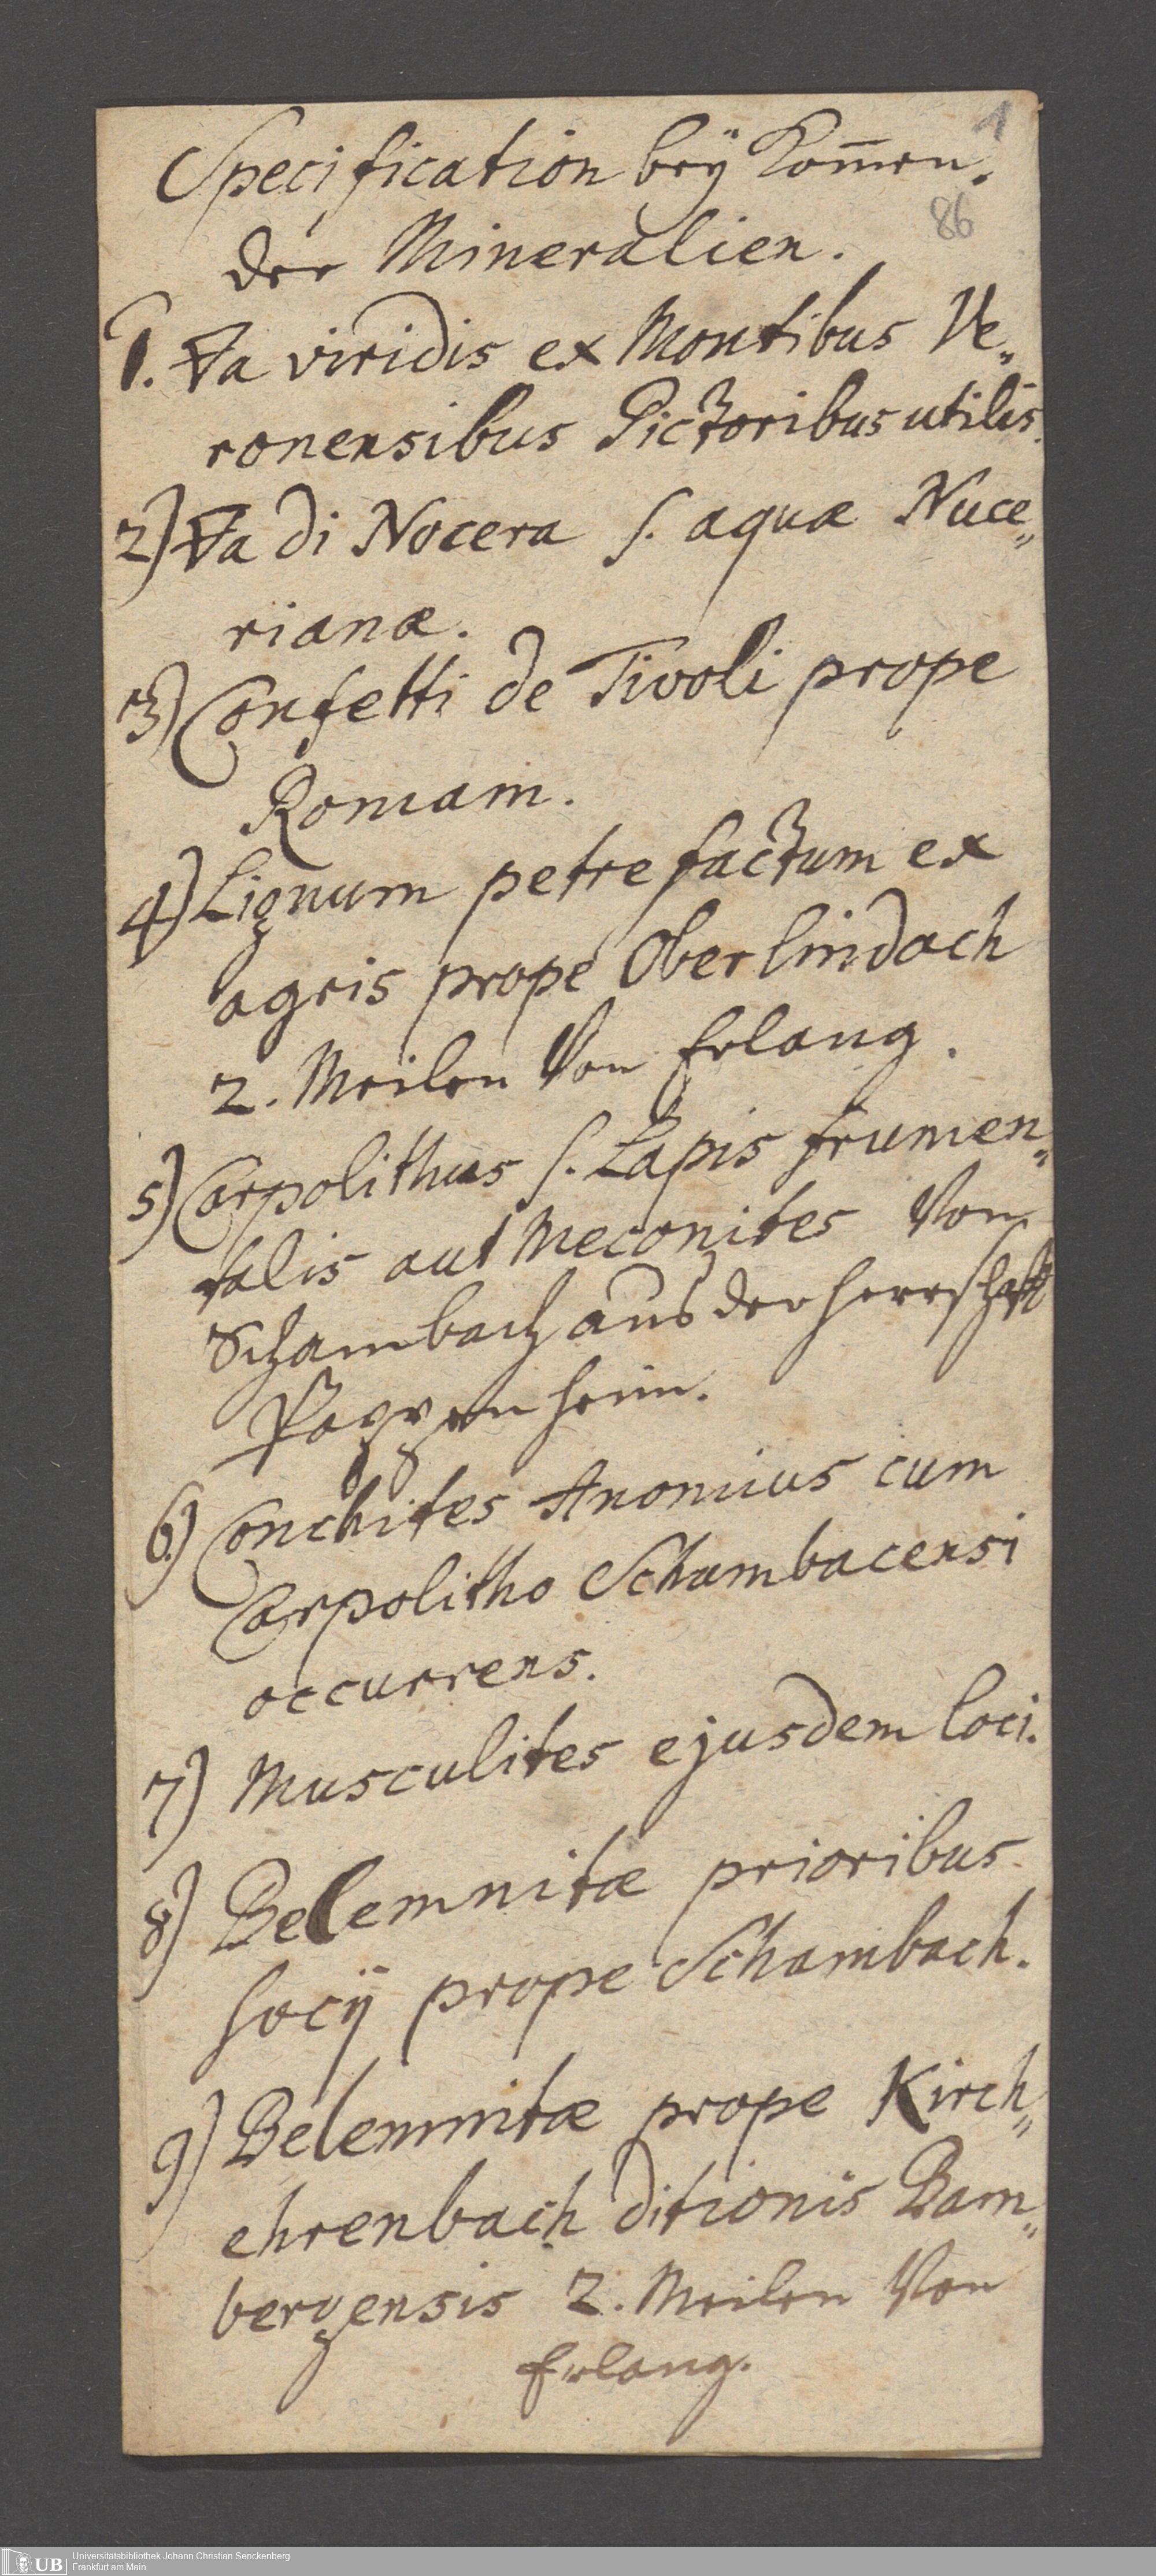 1
Specification beÿ kom̅en.
86
der Mineralien.
1. 🜃a viridis ex Montibus Ve„
ronensibus Pictoribus utilis.
2) 🜃a di Nocera s. aquæ Nuce„
rianæ.
3) Confetti de Tivoli prope
Romam.
4) Lignum petrefactum ex
agris prope Oberlindach
2. Meilen von Erlang.
5) Carpolithus s. Lapis frumen„
talis aut Meconites von
Schambach aus der Herrschafft
Pappenheim.
6) Conchites Anomius cum
Carpolitho Schambacensi
occurrens.
7) Musculites ejusdem loci.
8) Belemnitæ prioribus
socÿ prope Schambach.
9) Belemnitæ prope Kirch„
ehrenbach ditionis Bam„
bergensis 2. Meilen von
Erlang.
UB
Universitätsbibliothek Johann Christian Senckenberg
Frankfurt am Main